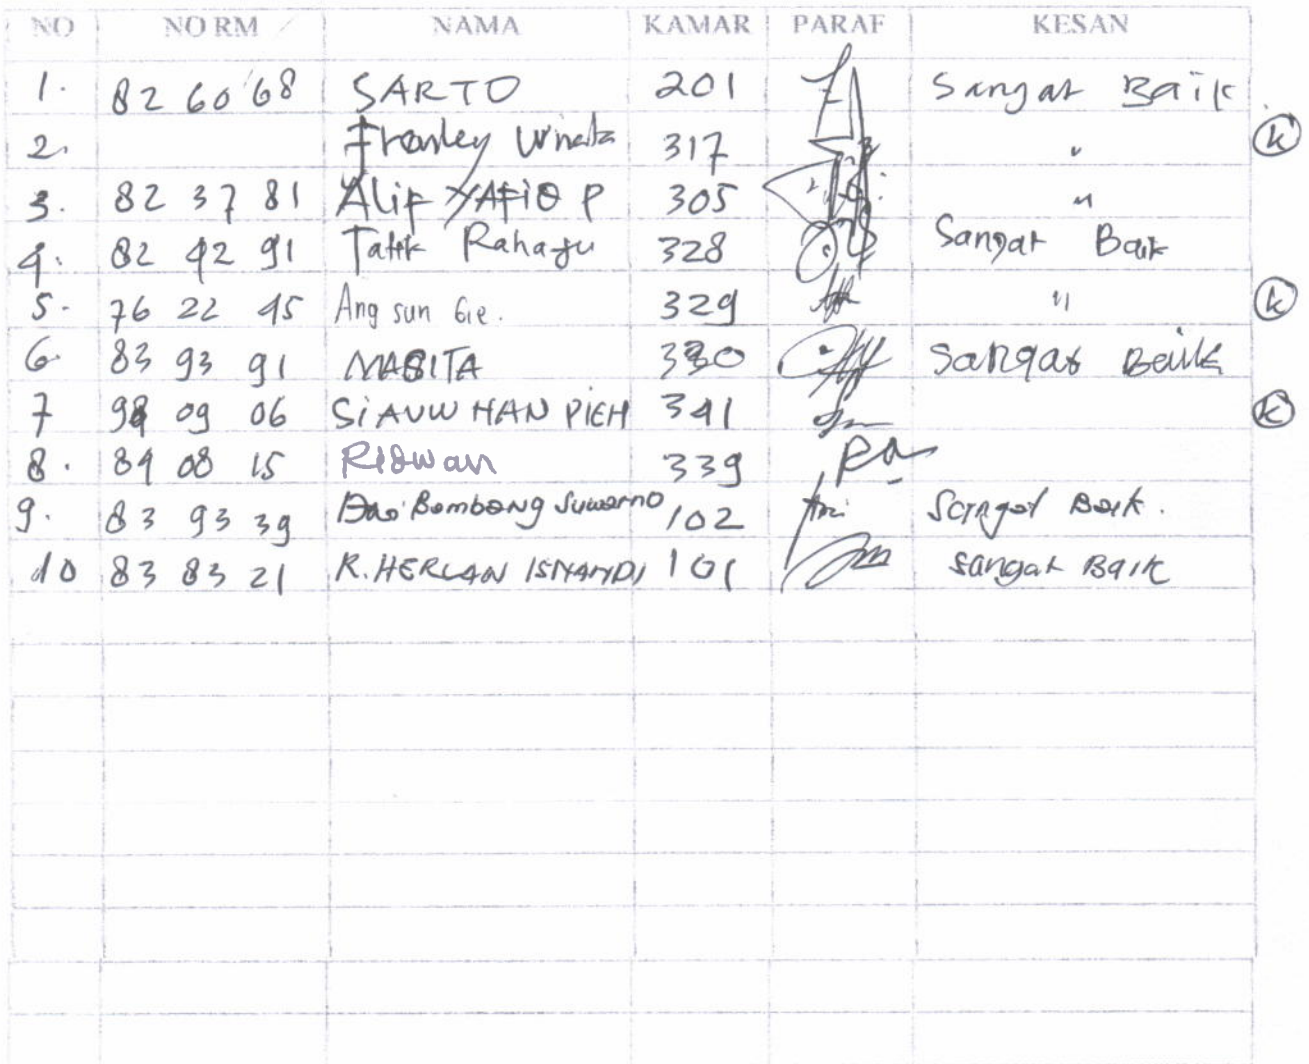 NO NO RM NAMA KAMAR PARAF KESAN
1. 82 60 68 SARTO 201 Sangat Baik
2. Franley Winata 317 " K
3. 82 37 81 Alif YAFIQ P 305 "
4. 82 42 91 Tatik Rahayu 328 Sangat Baik
5. 76 22 45 Ang sun Gie. 329 " K
6 83 93 91 MASITA 330 Sangat Baik
7 09 06 SIAUW HAN PIEH 341 K
8. 84 08 15 RISwan 339
9. 83 93 39 Bambang Suwarno 102 Sangat Baik.
10 83 83 21 R. HERLAN ISNANDI 101 sangat Baik